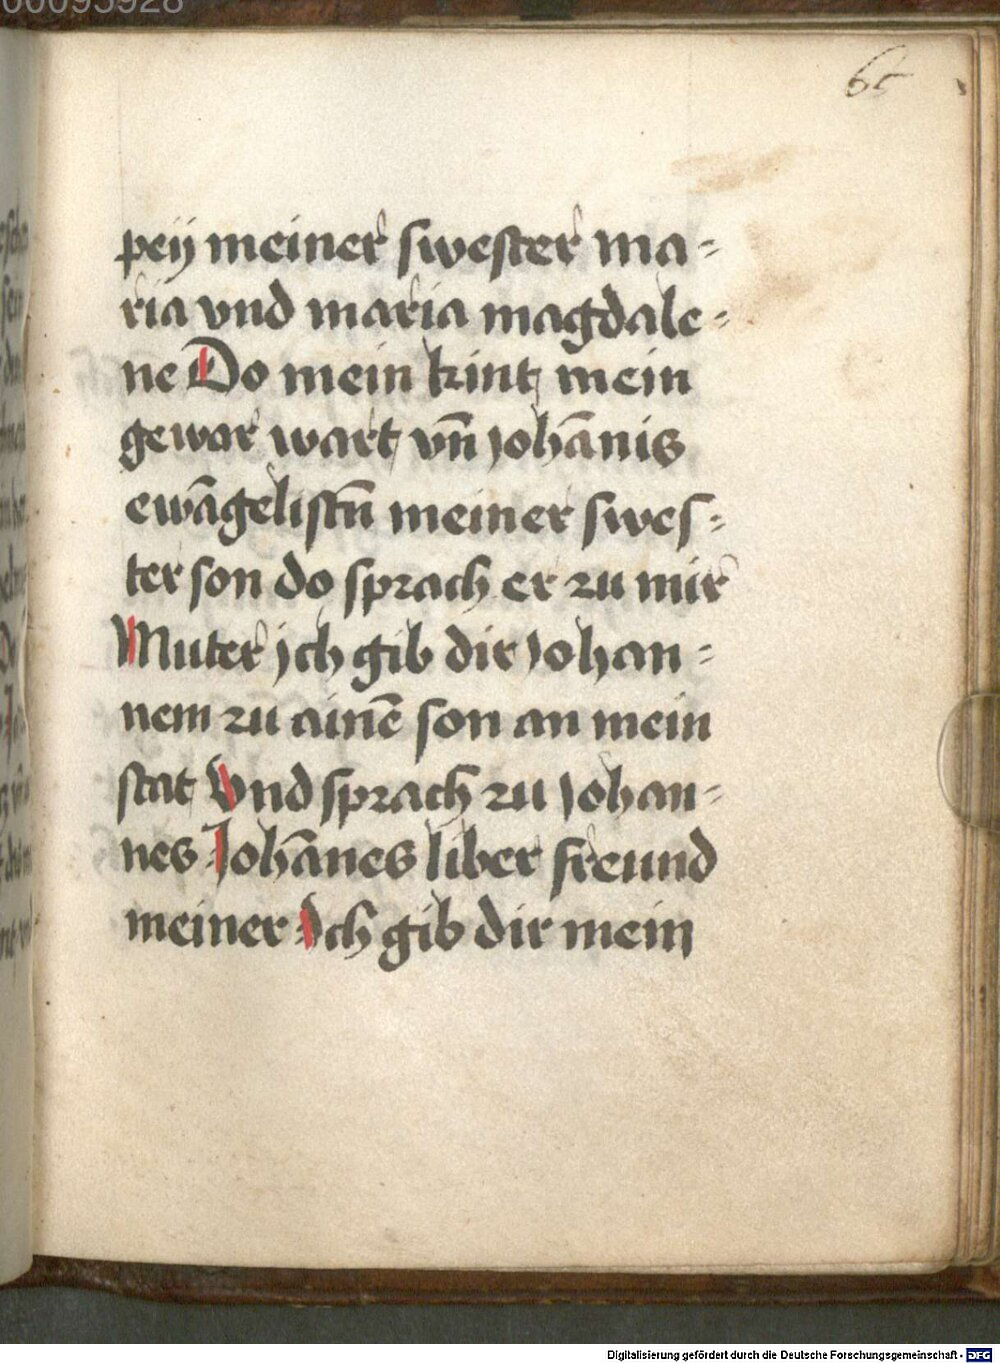 00095928
65
peÿ meiner swester ma-
ria vnd maria magdale-
ne Do mein kint mein
gewar wart vn̄ johānis
ewāgelistn̄ meiner swes-
ter son do sprach er zu mir
Muter jch gib dir Johan-
nem zu ainē son an mein
stat Vnd sprach zu Johan-
nes Johānes liber freund
meiner Ich gib dir mein
Digitalisierung gefördert durch die Deutsche Forschungsgemeinschaft - DFG